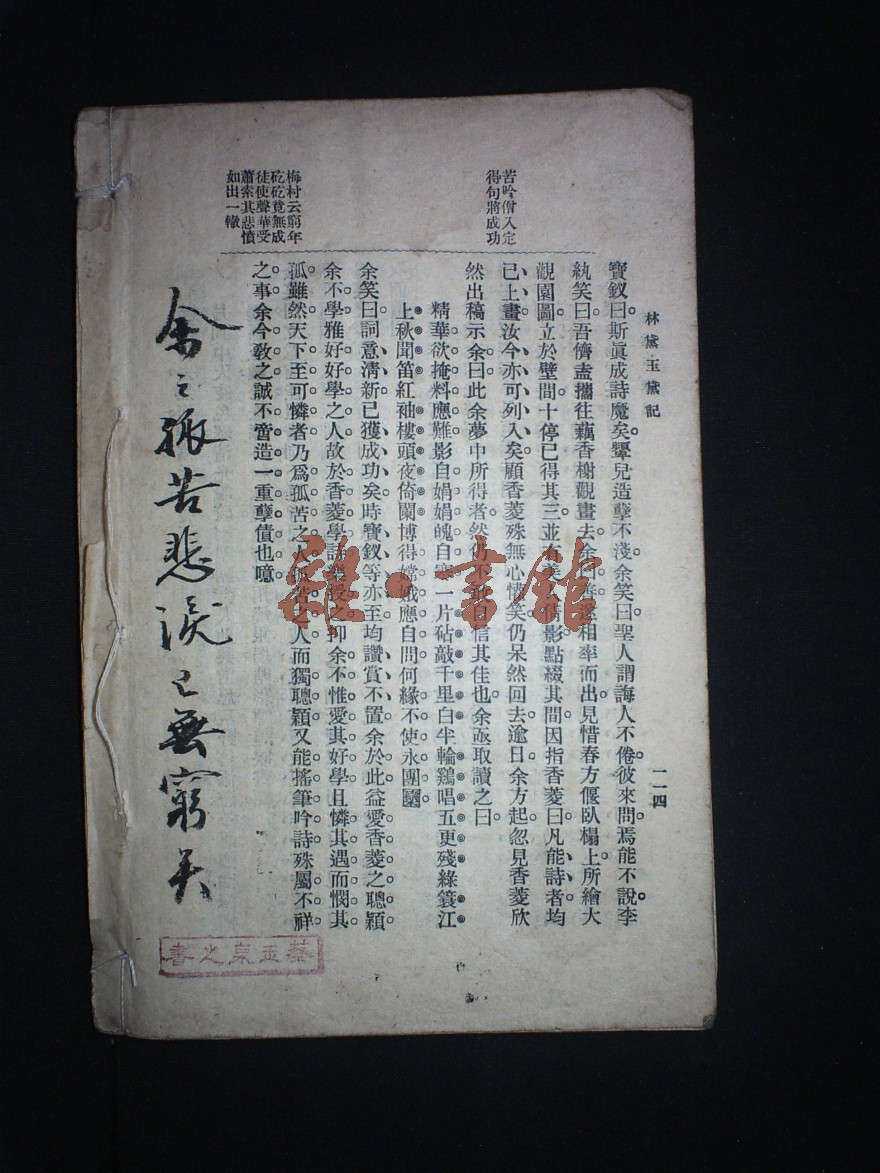 林黛玉黛記
一一四
寶釵曰斯眞成詩魔矣顰兒造孽不淺余笑曰聖人謂誨人不倦彼來問焉能不說李
紈笑曰吾儕盍攜往藕香榭觀畫去余曰善遂相率而出見惜春方偃臥榻上所繪大
觀園圖立於壁間十停已得其三並有美人倩影點綴其間因指香菱曰凡能詩者均
已上畫汝今亦可列入矣顧香菱殊無心情笑仍呆然回去逾日余方起忽見香菱欣
然出稿示余曰此余夢中所得者然仍不敢自信其佳也余亟取讀之曰
精華欲掩料應難影自娟娟魄自寒一片砧敲千里白半輪鷄唱五更殘綠簑江
上秋聞笛紅袖樓頭夜倚闌博得嫦娥應自問何緣不使永團圞
余笑曰詞意淸新已獲成功矣時寶釵等亦至均讚賞不置余於此益愛香菱之聰穎
余不學雅好好學之人故於香菱學詩樂授之抑余不惟愛其好學且憐其遇而憫其
孤雖然天下至可憐者乃爲孤苦之人孤苦之人而獨聰穎又能搖筆吟詩殊屬不祥
之事余今敎之誠不啻造一重孽債也噫
苦吟僧入定
得句將成功
梅村云窮年
矻矻竟無成
徒使聲華受
蕭索其悲憤
如出一轍
余之孤苦悲淚已無窮矣
蔡孟東之書
雜·書館